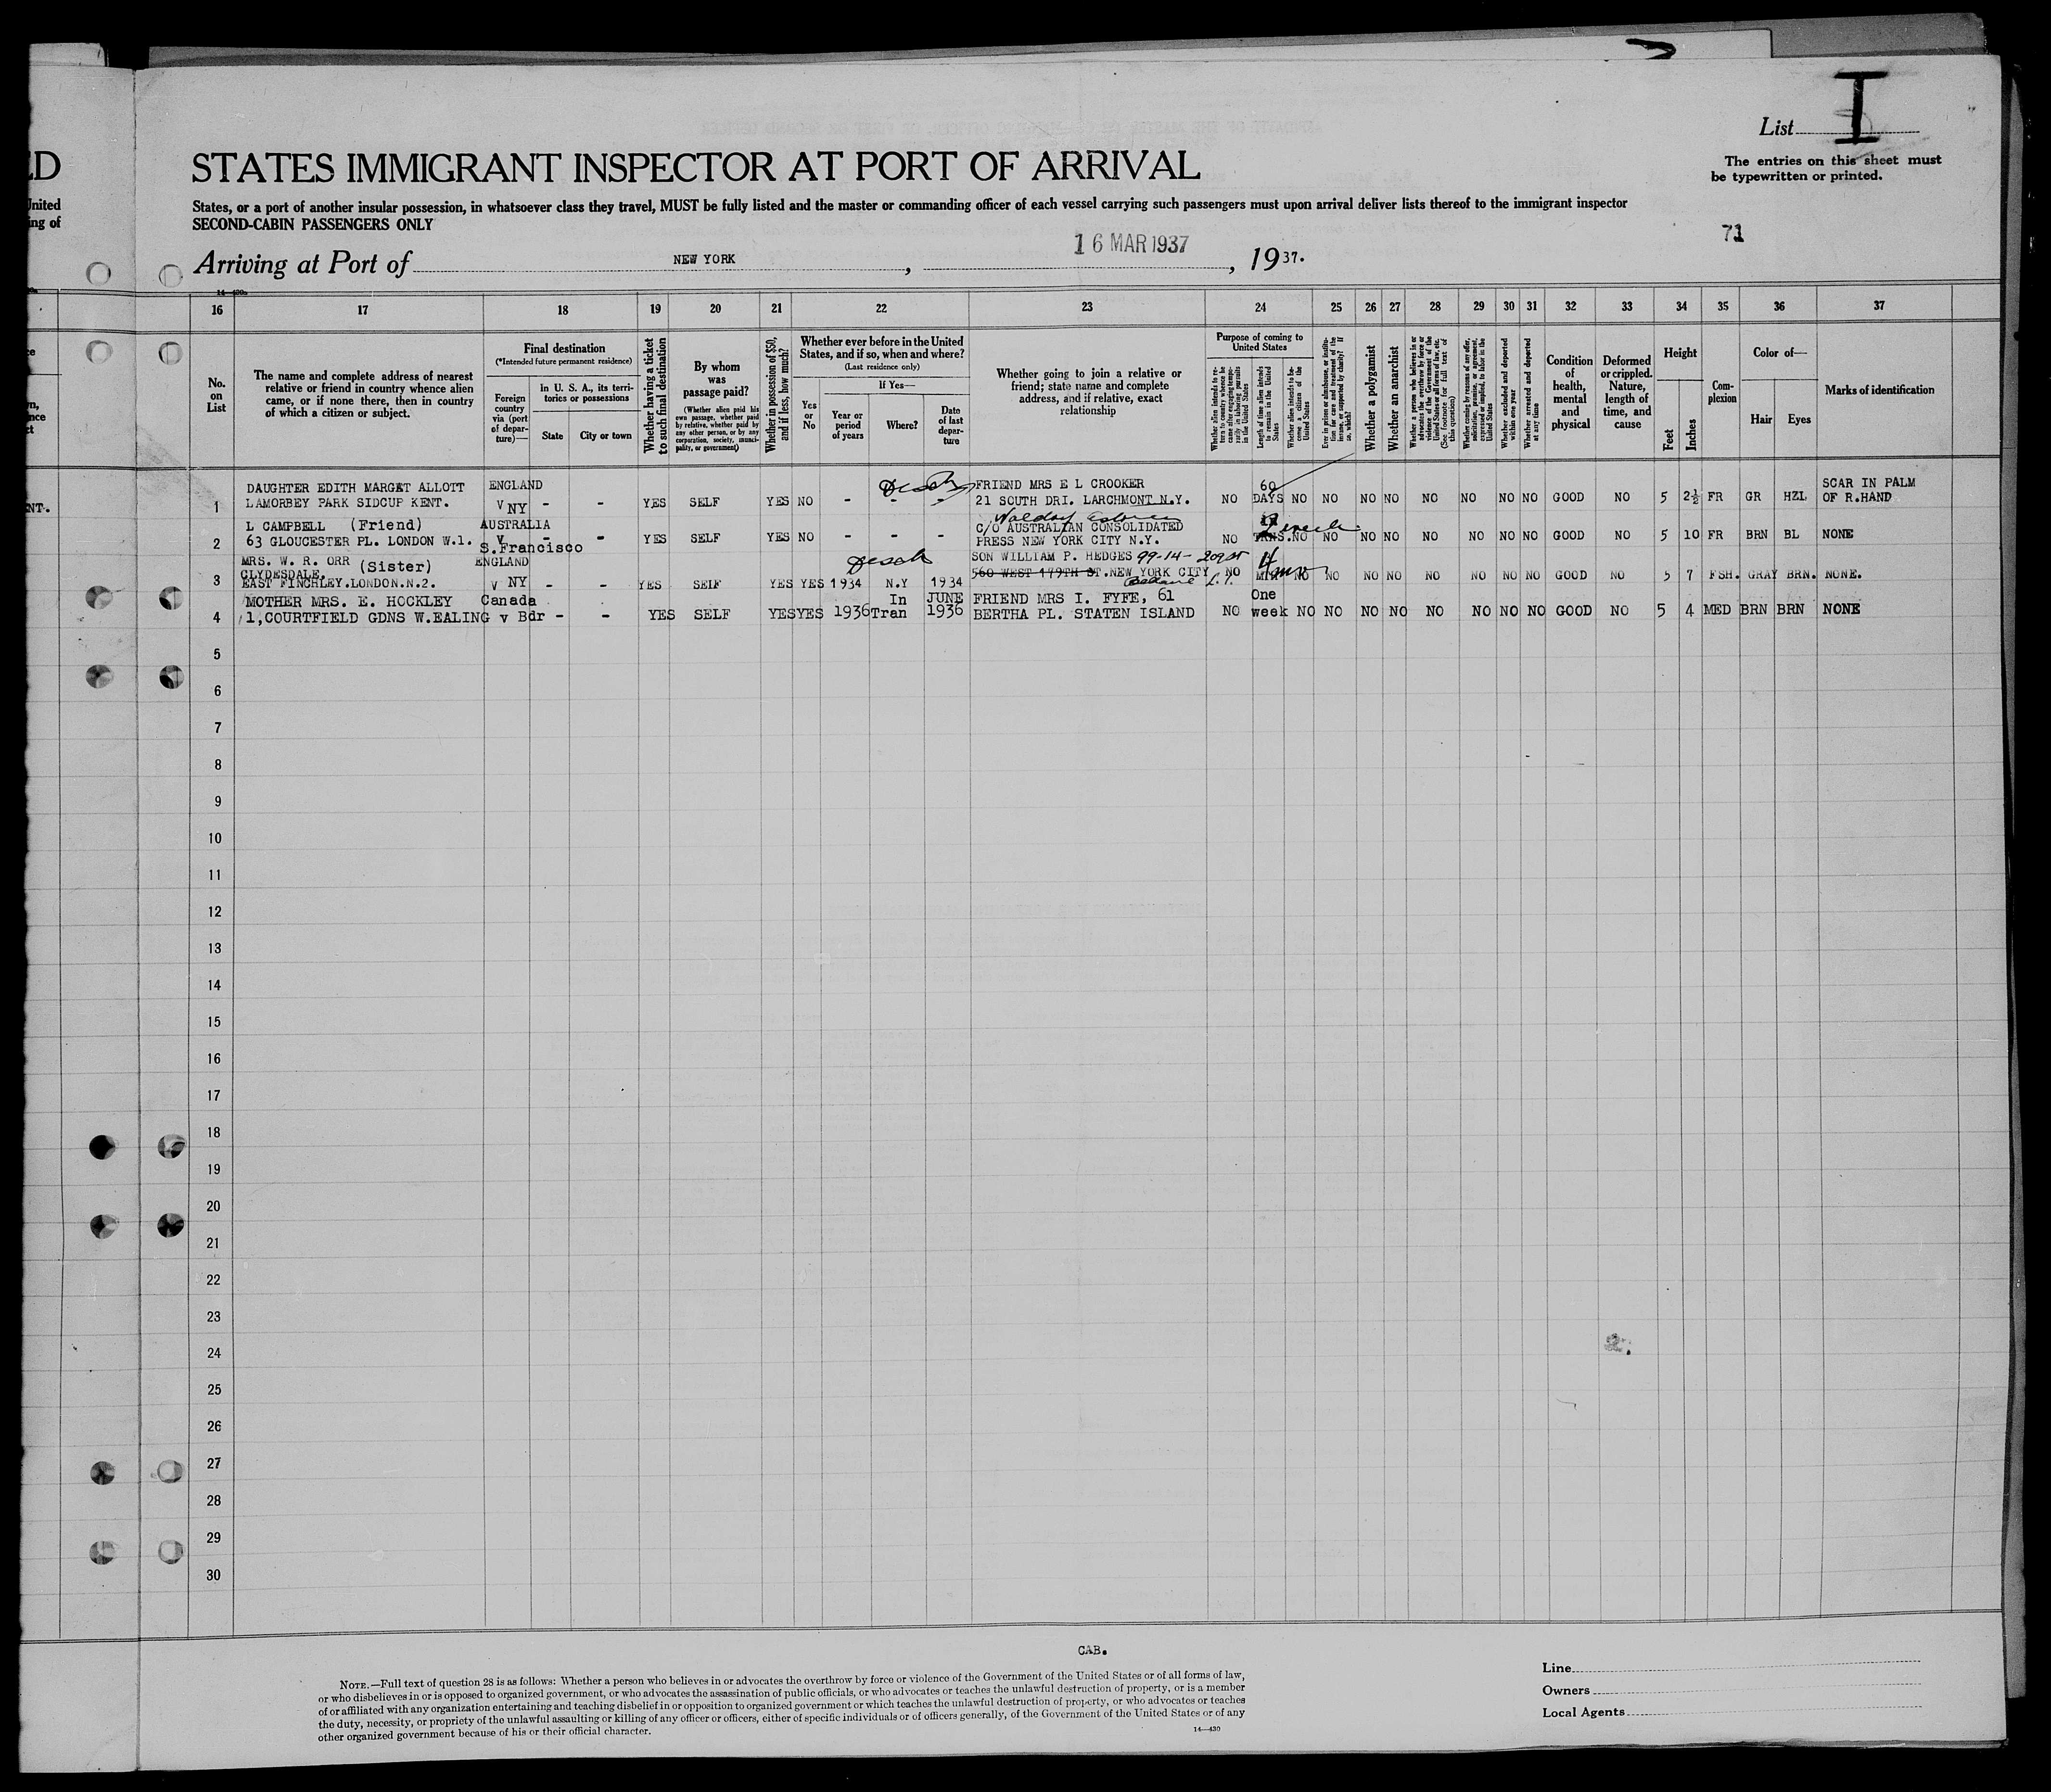 List I
The entries on this sheet must
be typewritten or printed.
LD
STATES IMMIGRANT INSPECTOR AT PORT OF ARRIVAL
United
ing of
States, or a port of another insular possession, in whatsoever class they travel, MUST be fully listed and the master or commanding officer of each vessel carrying such passengers must upon arrival deliver lists thereof to the immigrant inspector
SECOND-CABIN PASSENGERS ONLY
71
Arriving at Port of NEW YORK, 16 MAR 1937, 1937.
16 17 18 19 20 21 22 23 24 25 26 27 28 29 30 31 32 33 34 35 36 37
No.
on
List
The name and complete address of nearest
relative or friend in country whence alien
came, or if none there, then in country
of which a citizen or subject.
Final destination
(*Intended future permanent residence)
Foreign
country
via (port
of depar-
ture)—
In U. S. A., its terri-
tories or possessions
State City or town
Whether having a ticket
to such final destination
By whom
was
passage paid?
(Whether alien paid his
own passage, whether paid
by relative, whether paid by
any other person, or by any
corporation, society, munici-
pality, or government)
Whether in possession of $50,
and if less, how much?
Whether ever before in the United
States, and if so, when and where?
(Last residence only)
Yes
or
No
If Yes—
Year or
period
of years
Where?
Date
of last
depar-
ture
Whether going to join a relative or
friend; state name and complete
address, and if relative, exact
relationship
Purpose of coming to
United States
Whether alien intends to re-
turn to country whence he
came after engaging tempo-
rarily in laboring pursuits
in the United States
Length of time alien intends
to remain in the United
States
Whether alien intends to be-
come a citizen of the
United States
Ever in prison or almshouse, or institu-
tion for care and treatment of the
insane, or supported by charity? If
so, which?
Whether a polygamist
Whether an anarchist
Whether a person who believes in or
advocates the overthrow by force or
violence of the Government of the
United States or all forms of law, etc.
(See footnote for full text of
this question)
Whether coming by reasons of any offer,
solicitation, promise, or agreement,
expressed or implied, to labor in the
United States
Whether excluded and deported
within one year
Whether arrested and deported
at any time
Condition
of
health,
mental
and
physical
Deformed
or crippled.
Nature,
length of
time, and
cause
Height
Feet Inches
Com-
plexion
Color of—
Hair Eyes
Marks of identification
DAUGHTER EDITH MARGET ALLOTT ENGLAND FRIEND MRS E L CROOKER 60 SCAR IN PALM
1 LAMORBEY PARK SIDCUP KENT. V NY - - YES SELF YES NO - - - 21 SOUTH DRI. LARCHMONT N.Y. NO DAYS NO NO NO NO NO NO NO NO GOOD NO 5 2½ FR GR HZL OF R.HAND
L CAMPBELL (Friend) AUSTRALIA C/O AUSTRALIAN CONSOLIDATED
2 63 GLOUCESTER PL. LONDON W.1. V - - YES SELF YES NO - - - PRESS NEW YORK CITY N.Y. NO TRNS. NO NO NO NO NO NO NO NO GOOD NO 5 10 FR BRN BL NONE
S.Francisco
MRS. W. R. ORR (Sister) ENGLAND SON WILLIAM P. HEDGES 99-14- 209 St
CLYDESDALE, 560 WEST 179TH ST. NEW YORK CITY
3 EAST FINCHLEY.LONDON.N.2. V NY - - YES SELF YES YES 1934 N.Y 1934 L.I. NO 4 mo NO NO NO NO NO NO NO NO GOOD NO 5 7 FSH. GRAY BRN. NONE.
MOTHER MRS. E. HOCKLEY Canada In JUNE FRIEND MRS I. FYFE, 61 One
4 1,COURTFIELD GDNS W.EALING v Bdr - - YES SELF YES YES 1936 Tran 1936 BERTHA PL. STATEN ISLAND NO week NO NO NO NO NO NO NO NO GOOD NO 5 4 MED BRN BRN NONE
5
6
7
8
9
10
11
12
13
14
15
16
17
18
19
20
21
22
23
24
25
26
27
28
29
30
CAB.
NOTE.—Full text of question 28 is as follows: Whether a person who believes in or advocates the overthrow by force or violence of the Government of the United States or of all forms of law,
or who disbelieves in or is opposed to organized government, or who advocates the assassination of public officials, or who advocates or teaches the unlawful destruction of property, or is a member
of or affiliated with any organization entertaining and teaching disbelief in or opposition to organized government or which teaches the unlawful destruction of property, or who advocates or teaches
the duty, necessity, or propriety of the unlawful assaulting or killing of any officer or officers, either of specific individuals or of officers generally, of the Government of the United States or of any
other organized government because of his or their official character.
14—430
Line
Owners
Local Agents